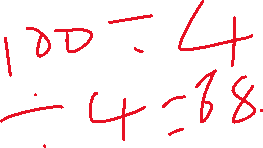 100 ÷ 4
÷ 4 = 68.